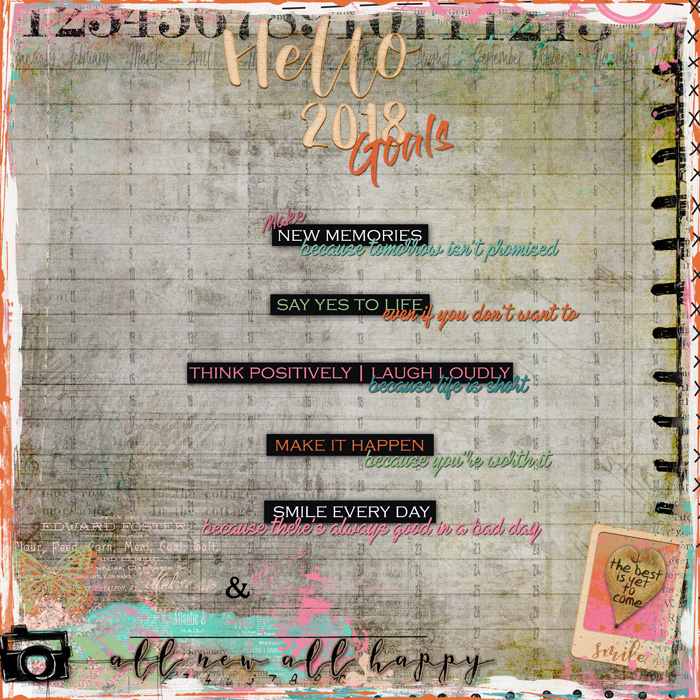 12345678910 11 12 13
January February March April August September October November
Hello
2018
Goals
Make
NEW MEMORIES
because tomorrow isn't promised
SAY YES TO LIFE
even if you don't want to
THINK POSITIVELY | LAUGH LOUDLY
because life is short
MAKE IT HAPPEN
because you're worth it
SMILE EVERY DAY
because there's always good in a bad day
EDWARD FOSTER
Flour, Feed, Corn, Meal, Coal, Salt
&
the best
is yet
to
come
smile
all new all happy